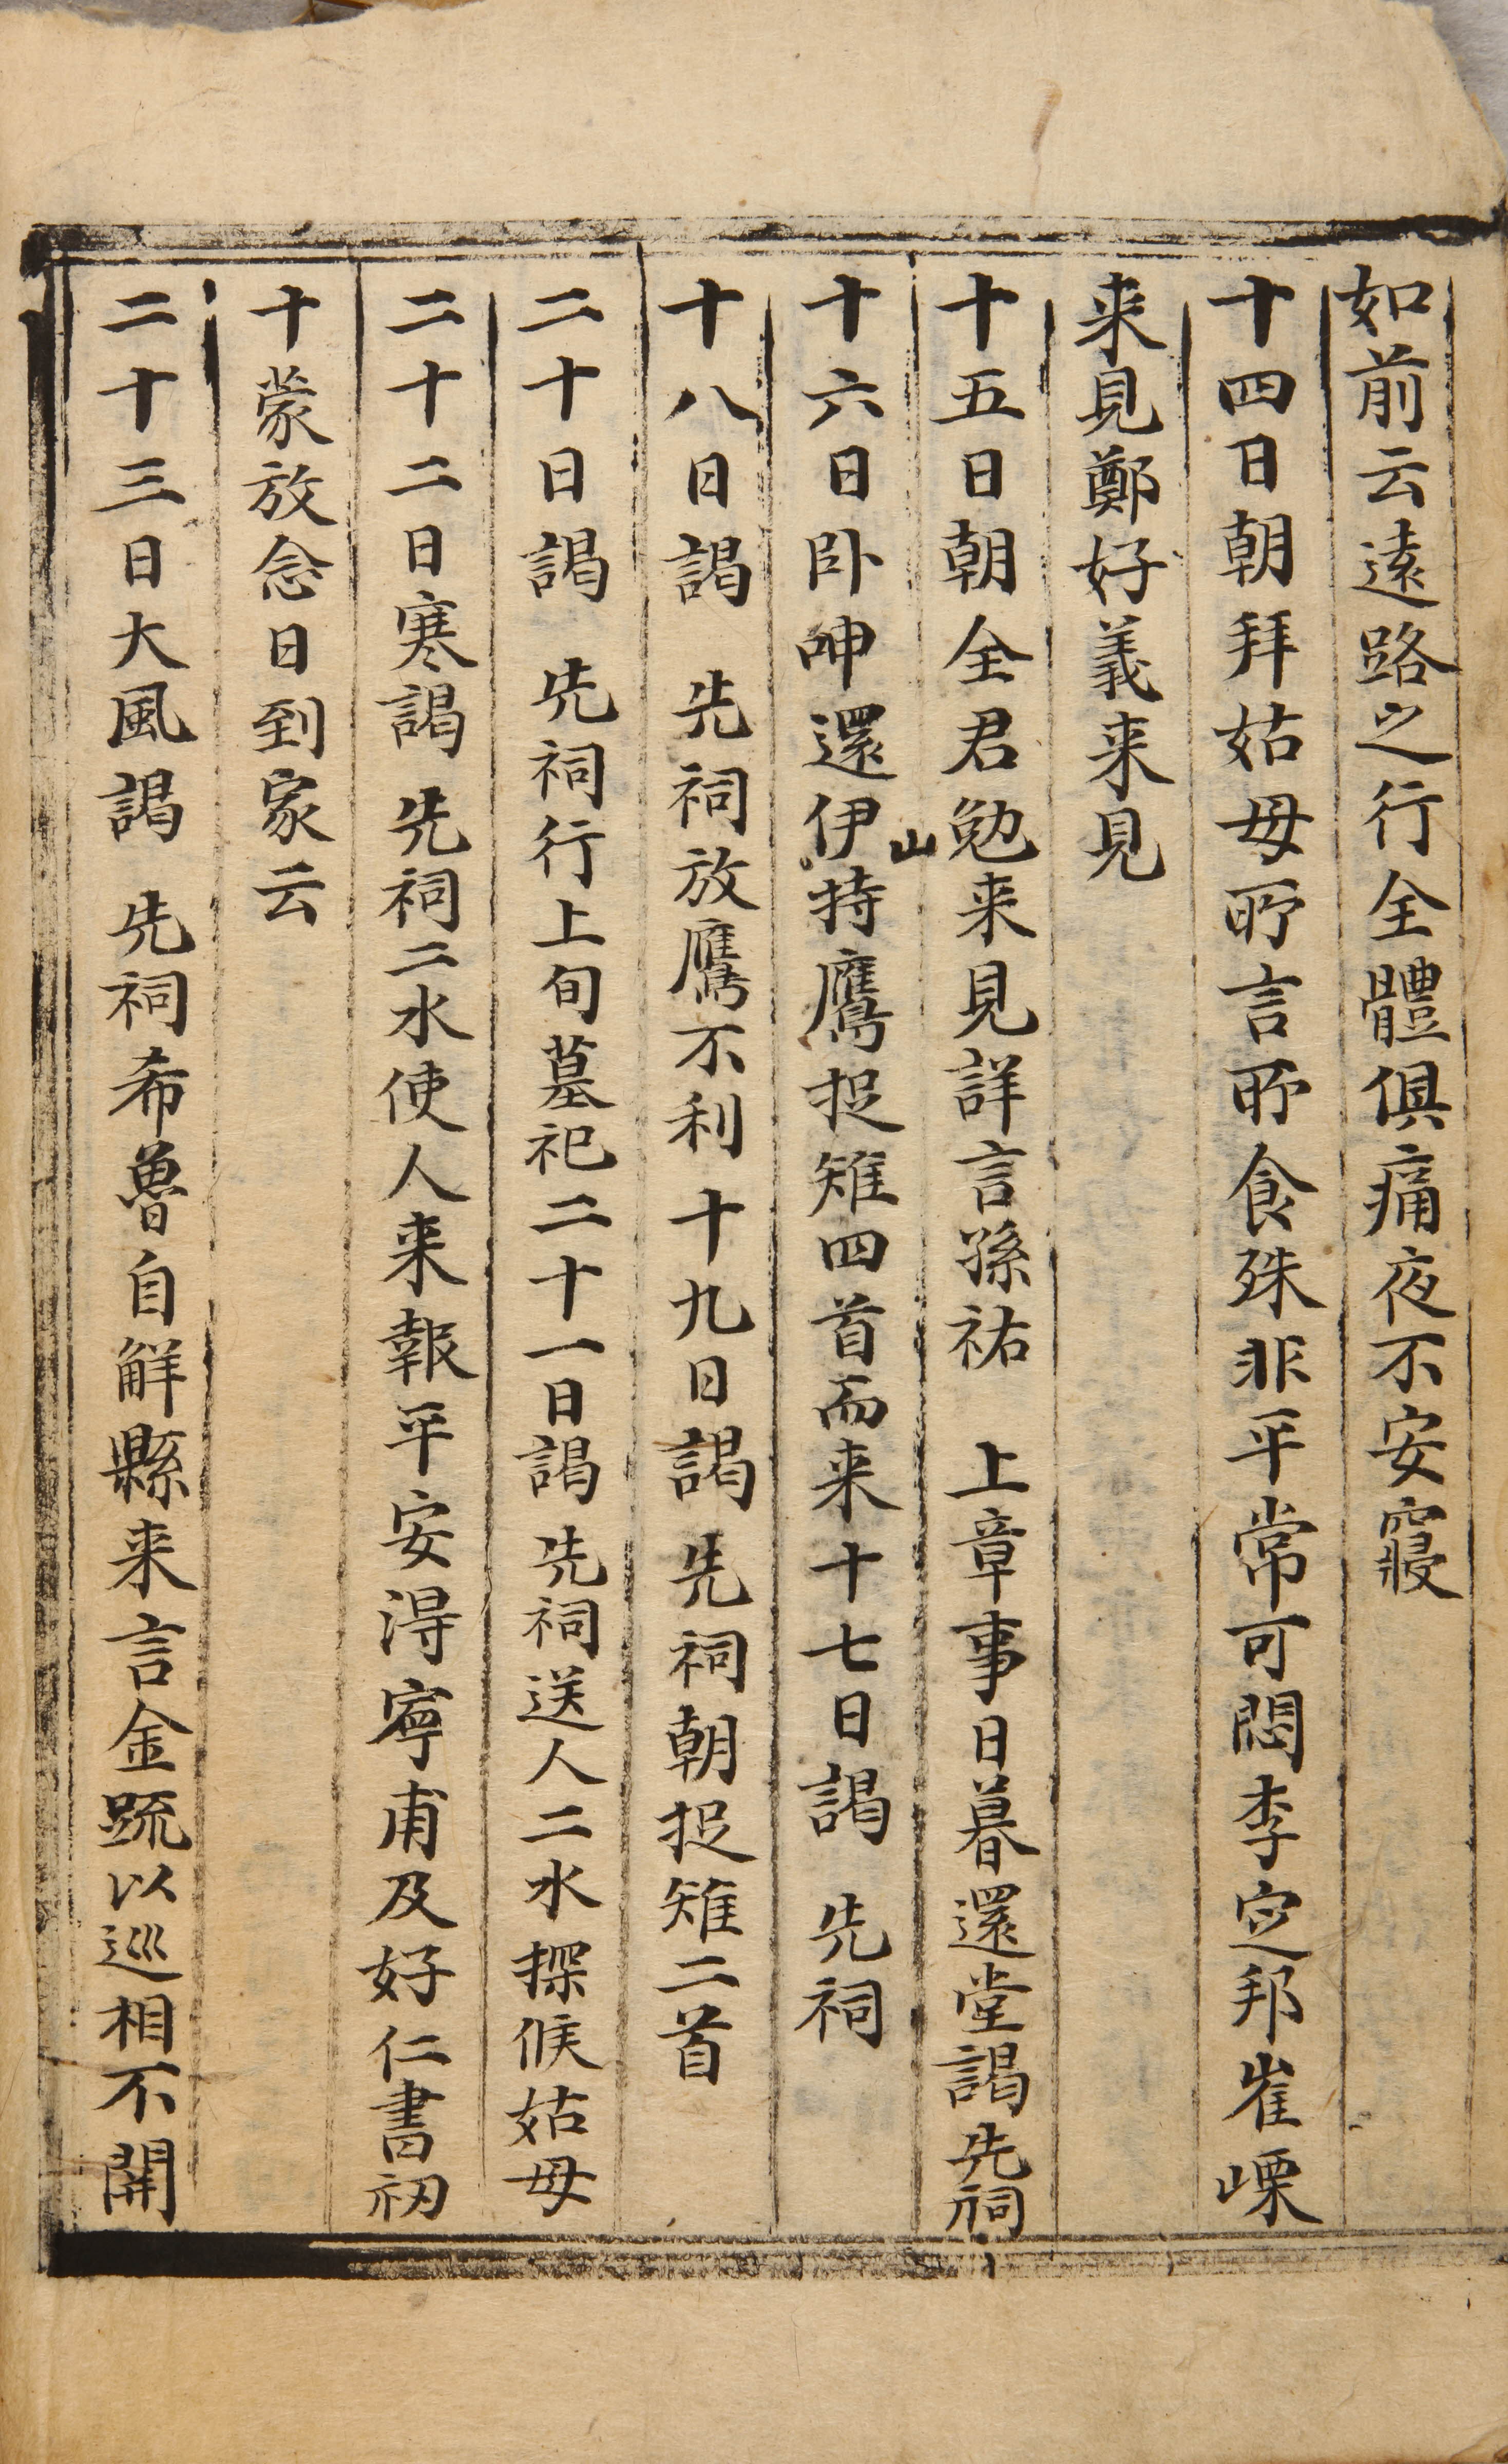 如前云遠路之行全體俱痛夜不安寢
十四日朝拜姑母所言所食殊非平常可悶李定邦崔㟳
来見鄭好義来見
十五日朝全君勉来見詳言孫祐 上章事日暮還堂謁先祠
十六日卧呻還伊山持鷹捉雉四首而来十七日謁 先祠
十八日謁 先祠放鷹不利十九日謁先祠朝捉雉二首
二十日謁 先祠行上旬墓祀二十一日謁先祠送人二水探候姑母
二十二日寒謁先祠二水使人来報平安淂寧甫及好仁書初
十蒙放念日到家云
二十三日大風謁 先祠希魯自觧縣来言金䟽以巡相不開